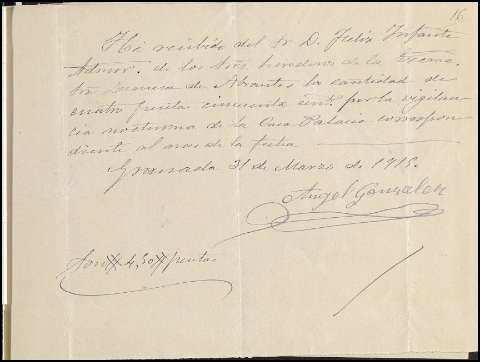 16
He recibido del Sr. D. Felix Infante
Admor. de los Sres. herederos de la Excma.
Sra Duquesa de Abrantes la cantidad de
cuatro pesetas cincuenta cents por la vigilan
cia nocturna de la Casa Palacio correspon
diente al mes de la fecha
Granada 31 de Marzo de 1915.
Angel Gonzalez
Son # 4,50 # pesetas